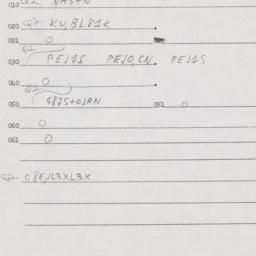 010
020 KV,BL81K
021 O
030 PEJ1S PEJO,CN. PEJ1S
040 O
050 G81S+OJAN 051 O
060 O
061 O
G8EJL3XL3X